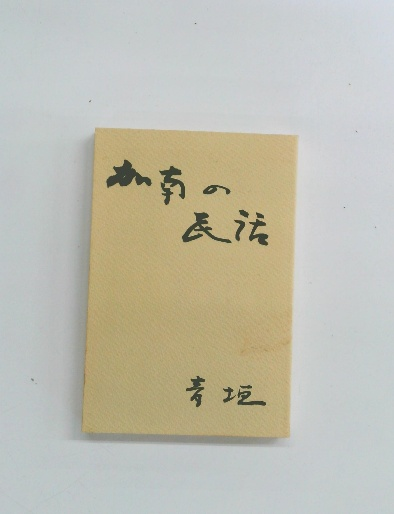 加南の
民話
青垣